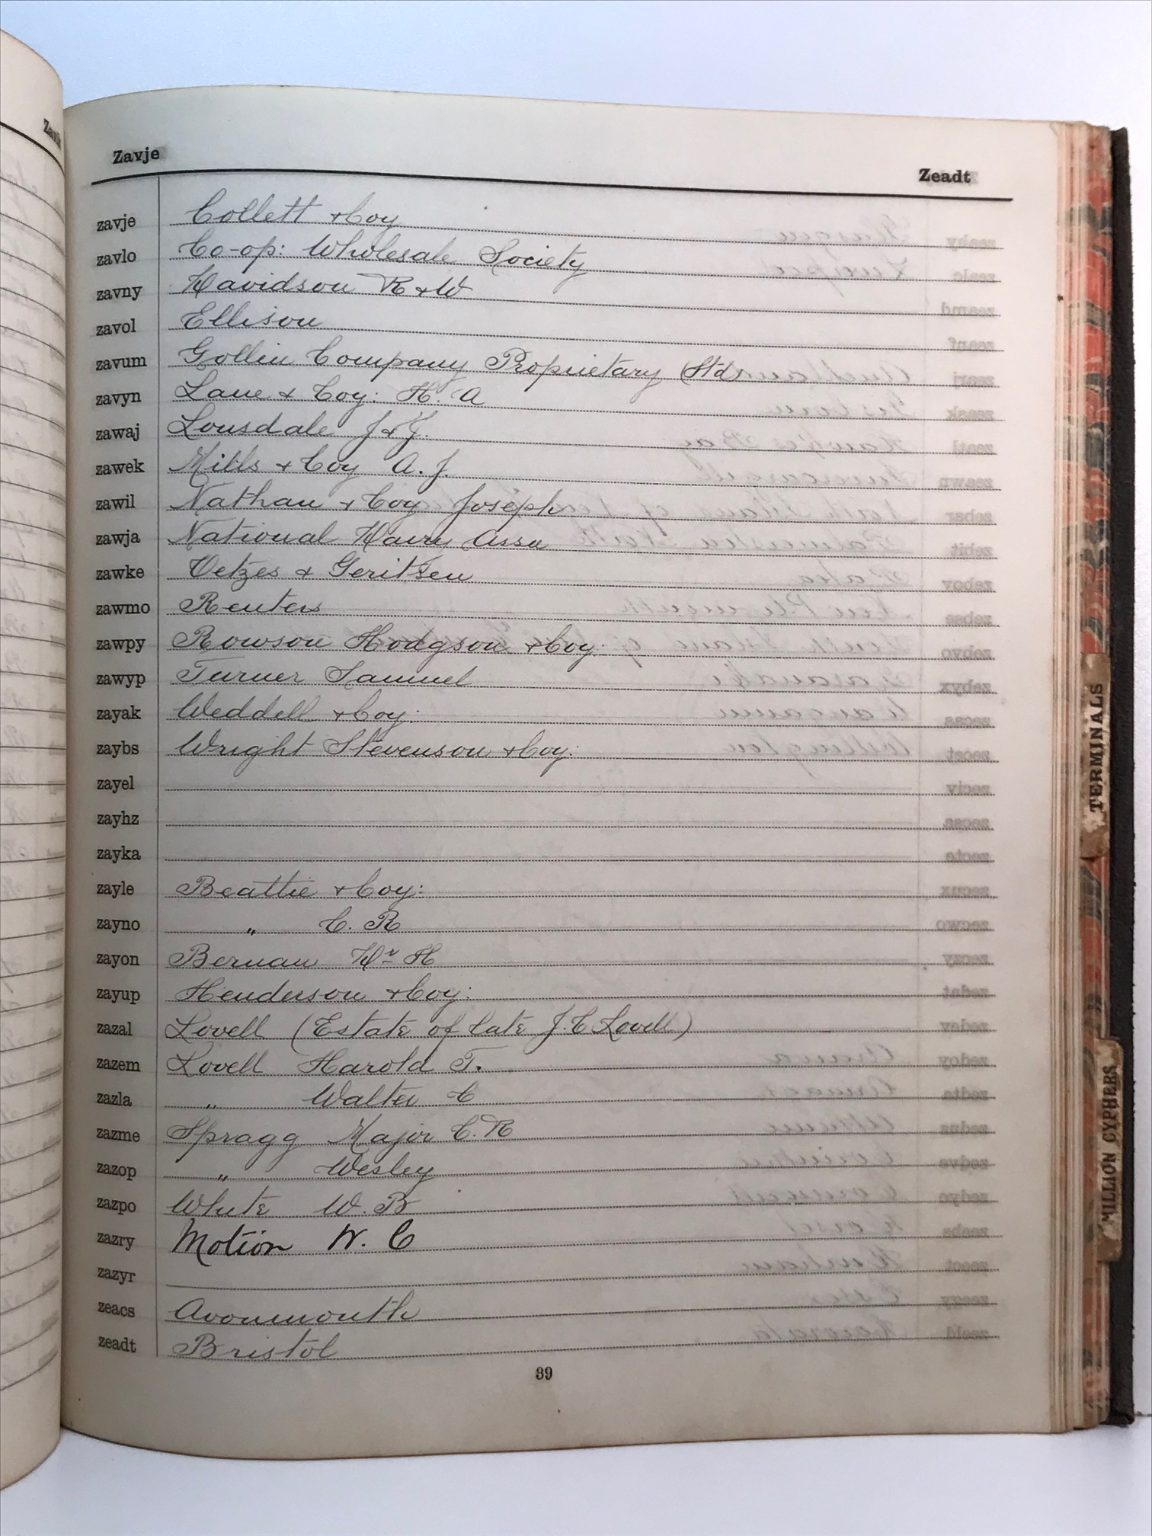 Zavje
Zeadt
zavje Collett & Coy
zavlo Co-op: Wholesale Society
zavny Davidson R & W
zavol Ellison
zavum Gollin Company Proprietary Ltd
zavyn Lane & Coy: H. A
zawaj Lonsdale J & J.
zawek Mills & Coy A. J.
zawil Nathan & Coy Joseph
zawja National Dairy Assn
zawke Oetzes & Geritsen
zawmo Reuters
zawpy Rowson Hodgson & Coy:
zawyp Turner Samuel
zayak Weddell & Coy:
zaybs Wright Stevenson & Coy:
zayel
zayhz
zayka
zayle Beattie & Coy:
zayno " C. R
zayon Bernau Dr H
zayup Henderson & Coy:
zazal Lovell (Estate of late J. C Lovell)
zazem Lovell Harold T.
zazla " Walter C
zazme Spragg Major C. R
zazop " Wesley
zazpo White W. B
zazry Motion W. C
zazyr
zeacs Avonmouth
zeadt Bristol
39
TERMINALS
MILLION CYPHERS